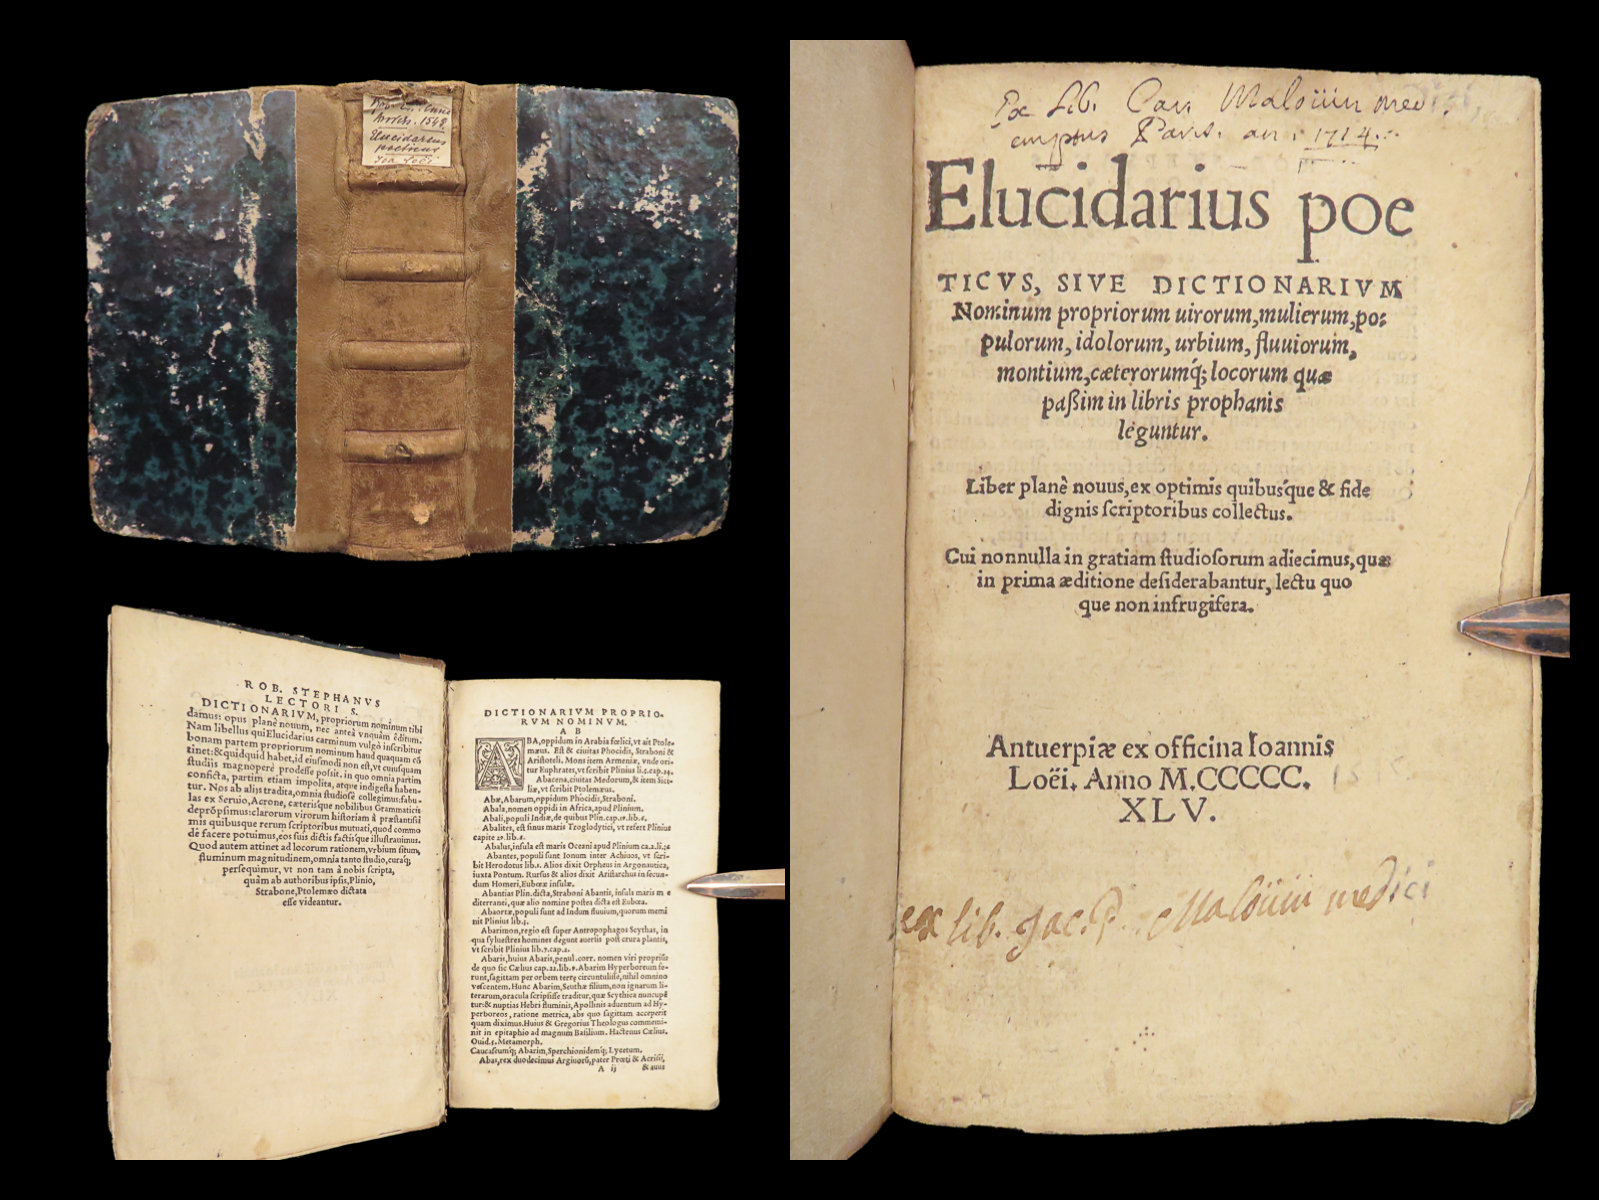 1548
Elucidarius
poeticus
ROB. STEPHANVS
LECTORI S.
DICTIONARIVM, propriorum nominum tibi
damus: opus planè nouum, nec anteà vnquàm êditum.
Nam libellus qui Elucidarius carminum vulgò inscribitur
bonam partem propriorum nominum haud quaquam cō
tinet: & quidquid habet, id eiusmodi non est, vt cuiusquam
studiis magnoperè prodesse possit. in quo omnia partim
conficta, partim etiam impolita, atque indigesta haben-
tur. Nos ab aliis tradita, omnia studiosè collegimus: fabu-
las ex Seruio, Acrone, cæterisque nobilibus Grammaticis
deprōpsimus: clarorum virorum historiam à præstantissi
mis quibusque rerum scriptoribus mutuati, quod commo
dè facere potuimus, eos suis dictis factisque illustrauimus.
Quod autem attinet ad locorum rationem, vrbium situm,
fluminum magnitudinem, omnia tanto studio, curaq;
persequimur, vt non tam à nobis scripta,
quàm ab authoribus ipsis, Plinio,
Strabone, Ptolemæo dictata
esse videantur.
DICTIONARIVM PROPRIO-
RVM NOMINVM.
A B
ABA, oppidum in Arabia fœlici, vt ait Ptole-
mæus. Est & ciuitas Phocidis, Straboni &
Aristoteli. Mons item Armeniæ, vnde ori-
tur Euphrates, vt scribit Plinius li.5.cap.24.
Abacena, ciuitas Medorum, & item Sici-
liæ, vt scribit Ptolemæus.
Abæ, Abarum, oppidum Phocidis, Straboni.
Abala, nomen oppidi in Africa, apud Plinium.
Abali, populi Indiæ, de quibus Plin.cap.19.lib.6.
Abalites, est sinus maris Troglodytici, vt refert Plinius
capite 29.lib.6.
Abalus, insula est maris Oceani apud Plinium
Abantes, populi sunt Ionum inter Achiuos, vt scri-
bit Herodotus lib.1. Alios dixit Orpheus in Argonautica,
iuxta Pontum. Rursus & alios dixit Aristarchus in secun-
dum Homeri, Eubœæ insulæ.
Abantias Plin. dicta, Straboni Abantis, insula maris m e
diterranei, quæ alio nomine postea dicta est Eubœa.
Abaortæ, populi sunt ad Indum fluuium, quorum memi
nit Plinius lib.6.
Abarimon, regio est super Antropophagos Scythas, in
qua syluestres homines degunt auersis post crura plantis,
vt scribit Plinius lib.7.cap.2.
Abaris, huius Abaris, penul.corr. nomen viri propriũ
de quo sic Cælius cap.22.lib. Abarim Hyperboreum fe-
runt, sagittam per orbem terrę circuntulisse, nihil omnino
vescentem. Hunc Abarim, Seuthæ filium, non ignarum li-
terarum, oracula scripsisse traditur, quæ Scythica nuncupē
tur: & nuptias Hebri fluminis, Apollinis aduentum ad Hy-
perboreos, ratione metrica, abs quo sagittam acceperit
quam diximus. Huius & Gregorius Theologus commemi-
nit in epitaphio ad magnum Basilium. Hactenus Cælius.
Ouid.5. Metamorph.
Caucasiumq; Abarim, Sperchionidemq; Lycetum.
Abas, rex duodecimus Argiuorũ, pater Prœti & Acrisii,
A ij & auus
Ex Lib. Car. Maloüin med
emptus Paris. an. 1714.
Elucidarius poe
TICVS, SIVE DICTIONARIVM
Nominum propriorum uirorum, mulierum, po-
pulorum, idolorum, urbium, fluuiorum,
montium, cæterorumq́; locorum quæ
paßim in libris prophanis
leguntur.
Liber planè nouus, ex optimis quibusque & fide
dignis scriptoribus collectus.
Cui nonnulla in gratiam studiosorum adiecimus, quæ
in prima æditione desiderabantur, lectu quo
que non infrugifera.
Antuerpiæ ex officina Ioannis
Loëi. Anno M.CCCCC.
XLV.
ex lib. Jac. P. Maloüin medici